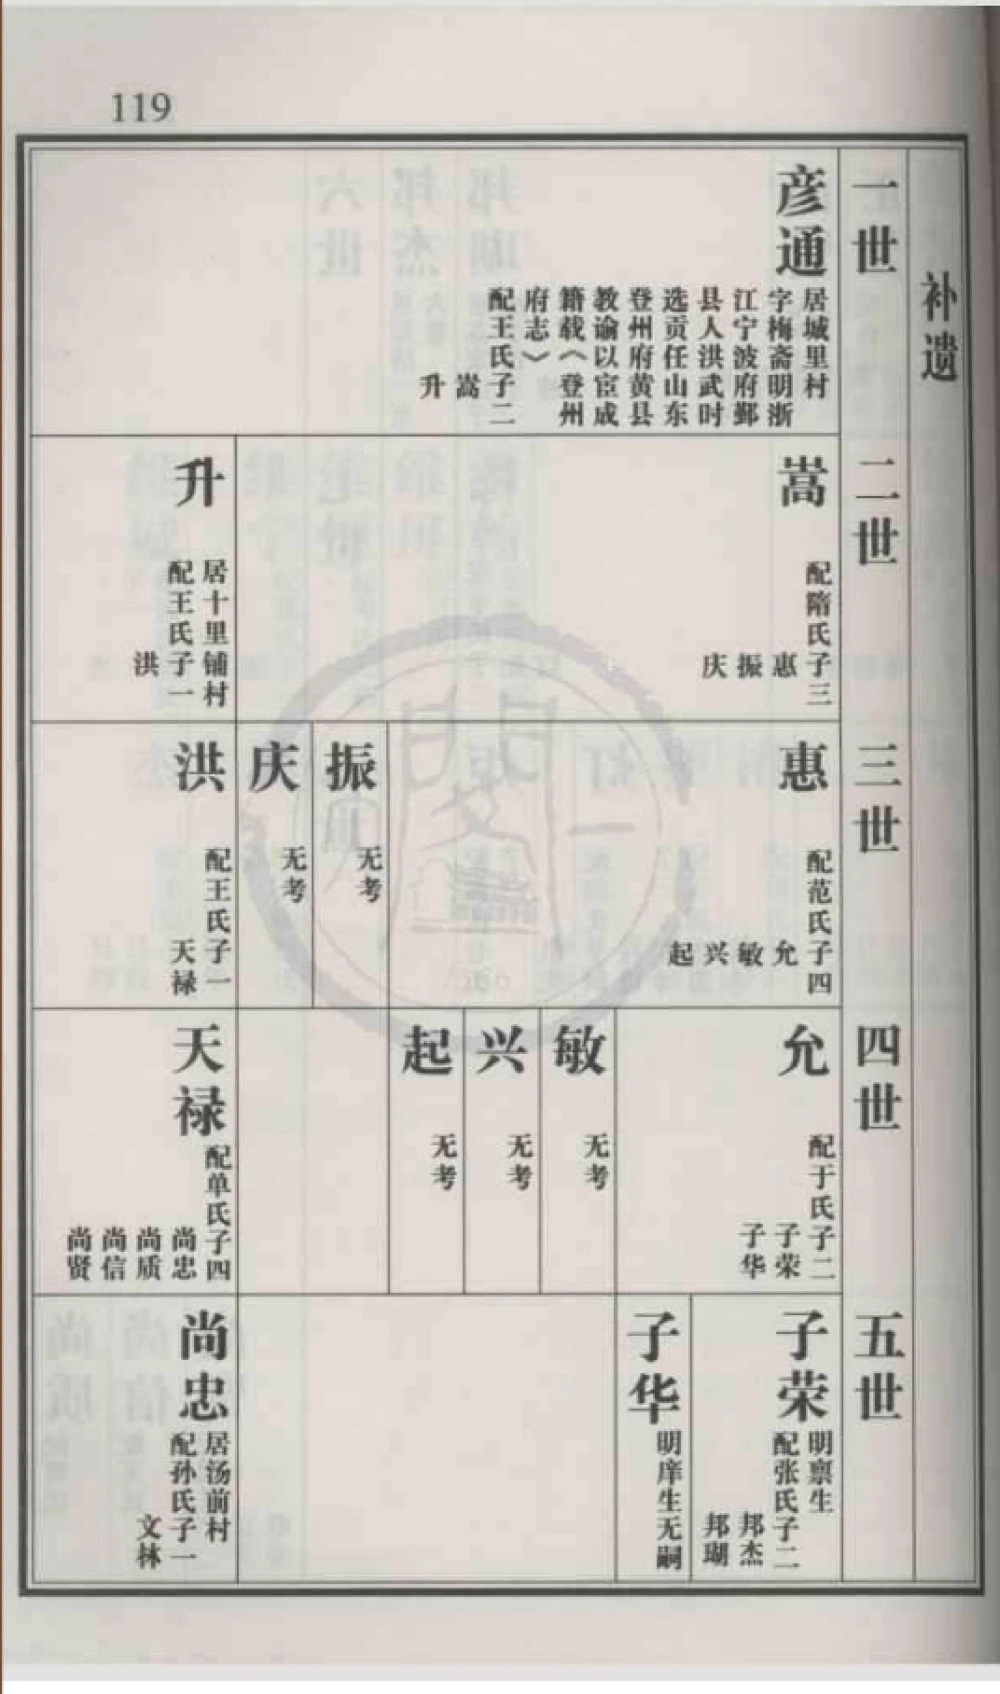 119
补遗
一世
彦通
居城里村
字梅斋明浙
江宁波府鄞
县人洪武时
选贡任山东
登州府黄县
教谕以宦成
籍载《登州
府志》
配王氏子二
嵩
升
二世
嵩
配隋氏子三
惠
振
庆
升
居十里铺村
配王氏子一
洪
三世
惠
配范氏子四
允
敏
兴
起
振
无考
庆
无考
洪
配王氏子一
天禄
四世
允
配于氏子二
子荣
子华
敏
无考
兴
无考
起
无考
天禄
配单氏子四
尚忠
尚质
尚信
尚贤
五世
子荣
明禀生
配张氏子二
邦杰
邦瑚
子华
明庠生无嗣
尚忠
居汤前村
配孙氏子一
文林